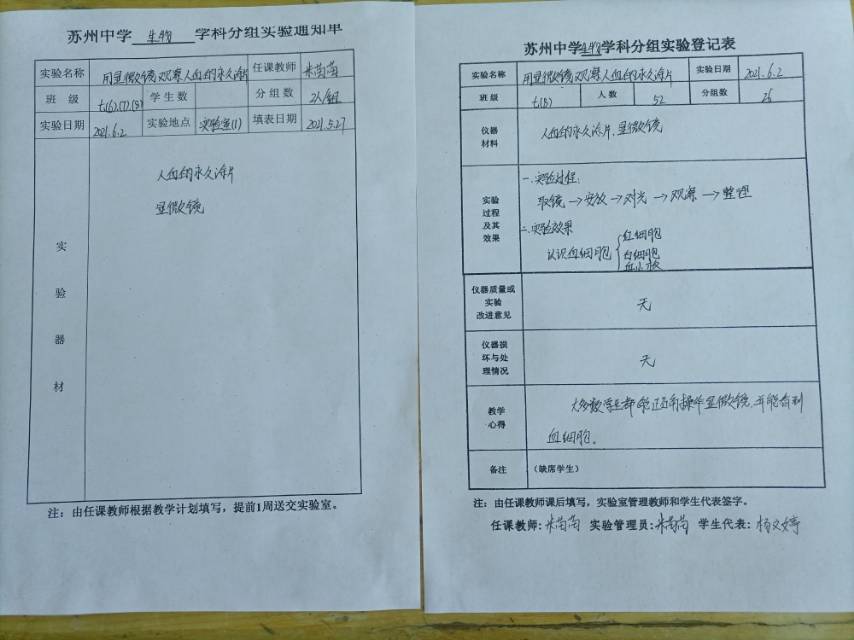 苏州中学 生物 学科分组实验通知单
实验名称 用显微镜观察人血的永久涂片 任课教师 朱苗苗
班 级 七(6).(7).(8) 学生数 分组数 2人/组
实验日期 2021.6.2 实验地点 实验室(1) 填表日期 2021.5.27
实验器材
人血的永久涂片
显微镜
注：由任课教师根据教学计划填写，提前1周送交实验室。
苏州中学生物学科分组实验登记表
实验名称 用显微镜观察人血的永久涂片 实验日期 2021.6.2
班级 七(8) 人数 52 分组数 26
仪器材料 人血的永久涂片.显微镜
实验过程及其效果
一.实验过程:
取镜→安放→对光→观察→整理
二.实验效果
认识血细胞 { 红细胞
白细胞
血小板
仪器质量或实验改进意见 无
仪器损坏与处理情况 无
教学心得 大多数学生都能正确操作显微镜.并能看到
血细胞.
备注 （缺席学生）
注：由任课教师课后填写，实验室管理教师和学生代表签字。
任课教师: 朱苗苗 实验管理员: 朱苗苗 学生代表: 杨文婷